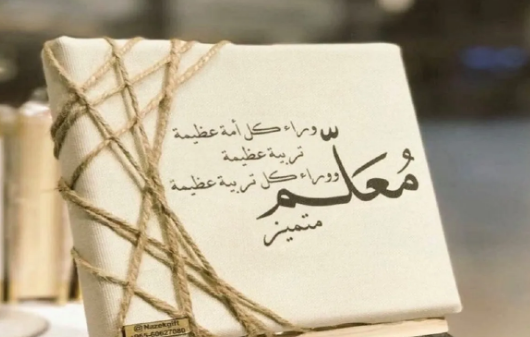 وراء كل أمة عظيمة
تربية عظيمة
ووراء كل تربية عظيمة
مُعَلِّم
متميز
Mazekgift